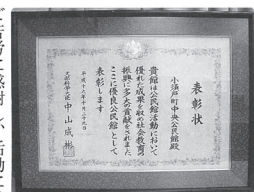 表彰状
小須戸町中央公民館殿
貴館は公民館活動において
優れた成果を収め社会教育の
振興に多大の貢献をされました
ここに優良公民館として
表彰します
平成十六年十月二十九日
文部科学大臣 中山成彬
感謝し、活動